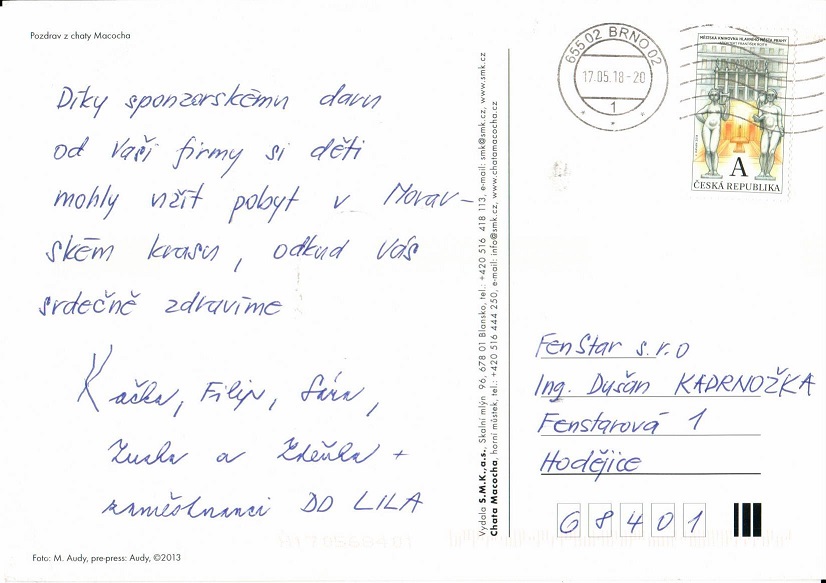 Pozdrav z chaty Macocha
Díky sponzorskému daru
od Vaší firmy si děti
mohly užít pobyt v Morav-
ském krasu, odkud Vás
srdečně zdravíme
Kačka, Filip, Sára,
Zuzka a Zdeňka +
zaměstnanci DD LILA
Foto: M. Audy, pre-press: Audy, ©2013
Vydala S.M.K., a.s., Skalní mlýn 96, 678 01 Blansko, tel.: +420 516 418 113, e-mail: smk@smk.cz, www.smk.cz
Chata Macocha, horní můstek, tel.: +420 516 444 250, e-mail: info@smk.cz, www.chatamacocha.cz
655 02 BRNO 02
17.05.18-20
1
MĚSTSKÁ KNIHOVNA HLAVNÍHO MĚSTA PRAHY
A
ČESKÁ REPUBLIKA
FenStar s.r.o
Ing. Dušan KADRNOŽKA
Fenstarová 1
Hodějice
68401